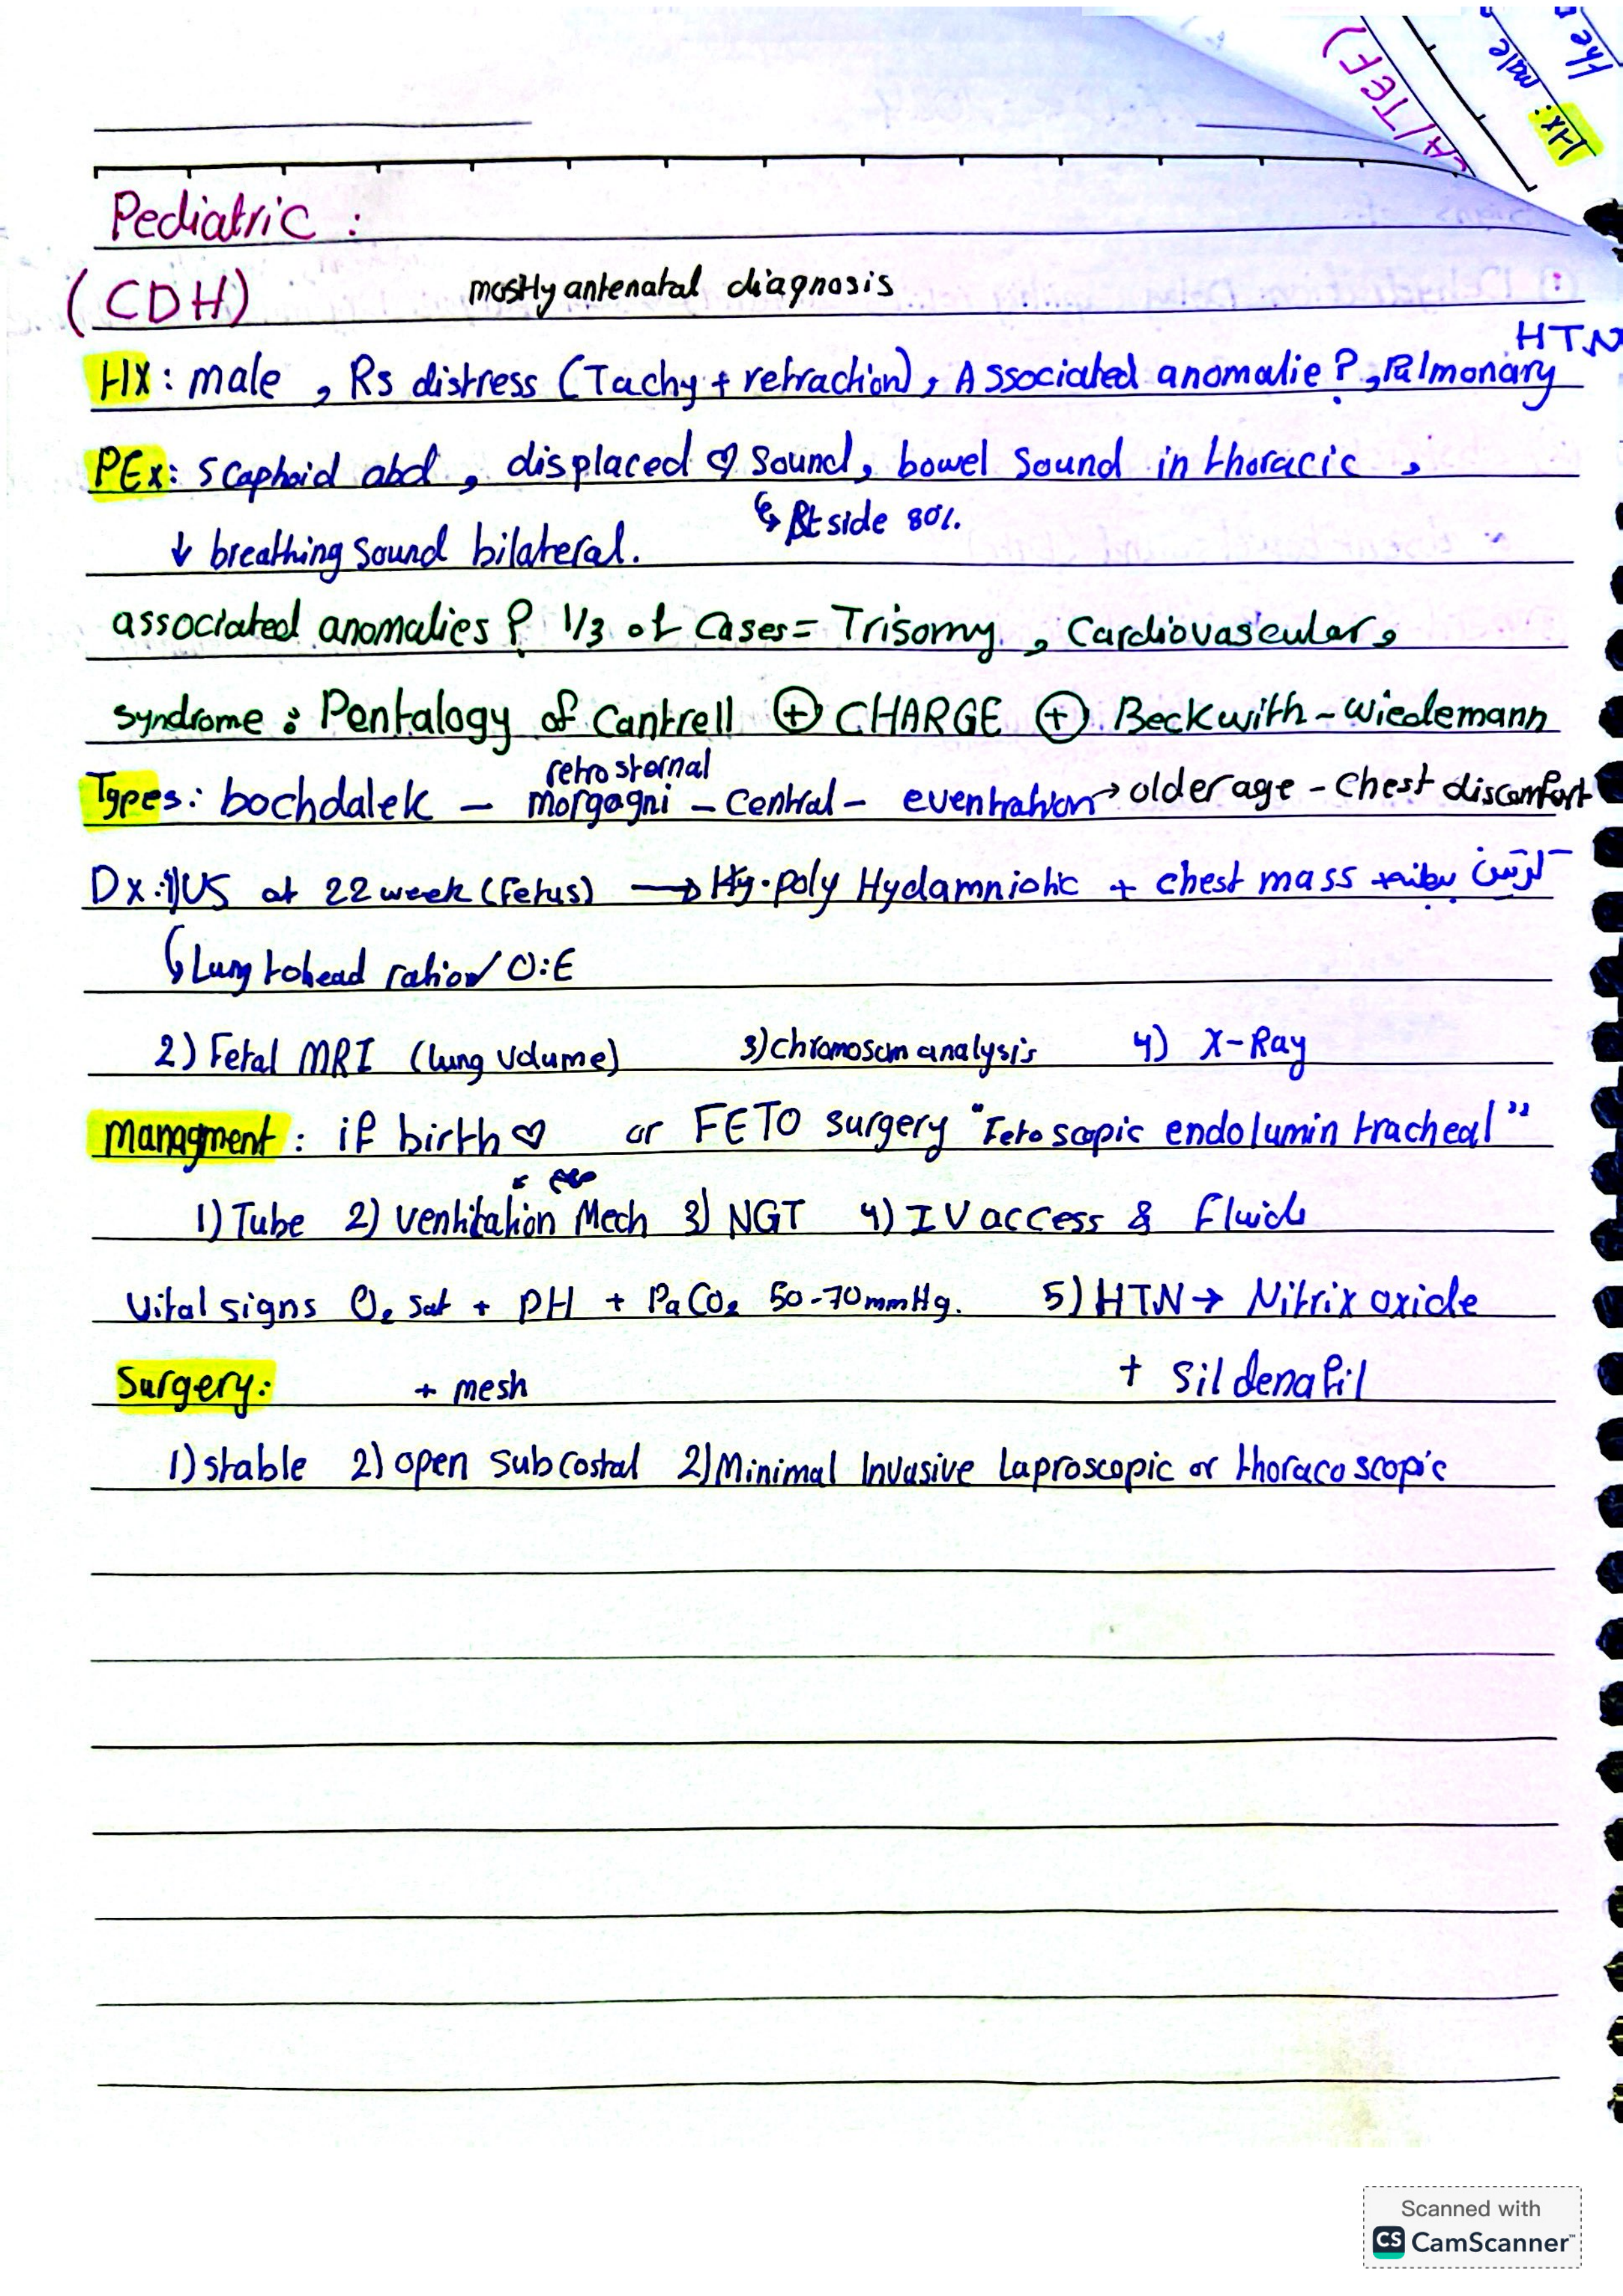 The
male
HX:
A/TEF)
Pediatric :
(CDH) mostly antenatal diagnosis
HTN
HX: male , Rs distress (Tachy + retraction), Associated anomalie ? , Pulmonary
PEx: Scaphoid abd , displaced ♡ Sound, bowel Sound in thoracic ,
↳ Rt side 80%.
↓ breathing sound bilateral.
associated anomalies ? 1/3 of Cases = Trisomy , Cardiovascular,
syndrome : Pentalogy of Cantrell ⊕ CHARGE ⊕ Beckwith-wiedemann
retrosternal
Types: bochdalek - morgagni - Central - eventration → older age - Chest discomfort
Dx: 1) US at 22 week (fetus) → poly Hydamniotic + chest mass
↳ Lung to head ration / O:E
2) Fetal MRI (lung volume) 3) chromosom analysis 4) X-Ray
Managment : if birth ♡ or FETO surgery "Fetoscopic endolumin tracheal"
1) Tube 2) ventilation Mech 3) NGT 4) IV access & Fluids
Vital signs O₂ sat + PH + PaCO₂ 50-70mmHg. 5) HTN → Nitrix oxide
+ Sildenafil
Surgery: + mesh
1) stable 2) open Subcostal 2) Minimal Invasive Laproscopic or thoracoscopic
Scanned with
CS CamScanner™